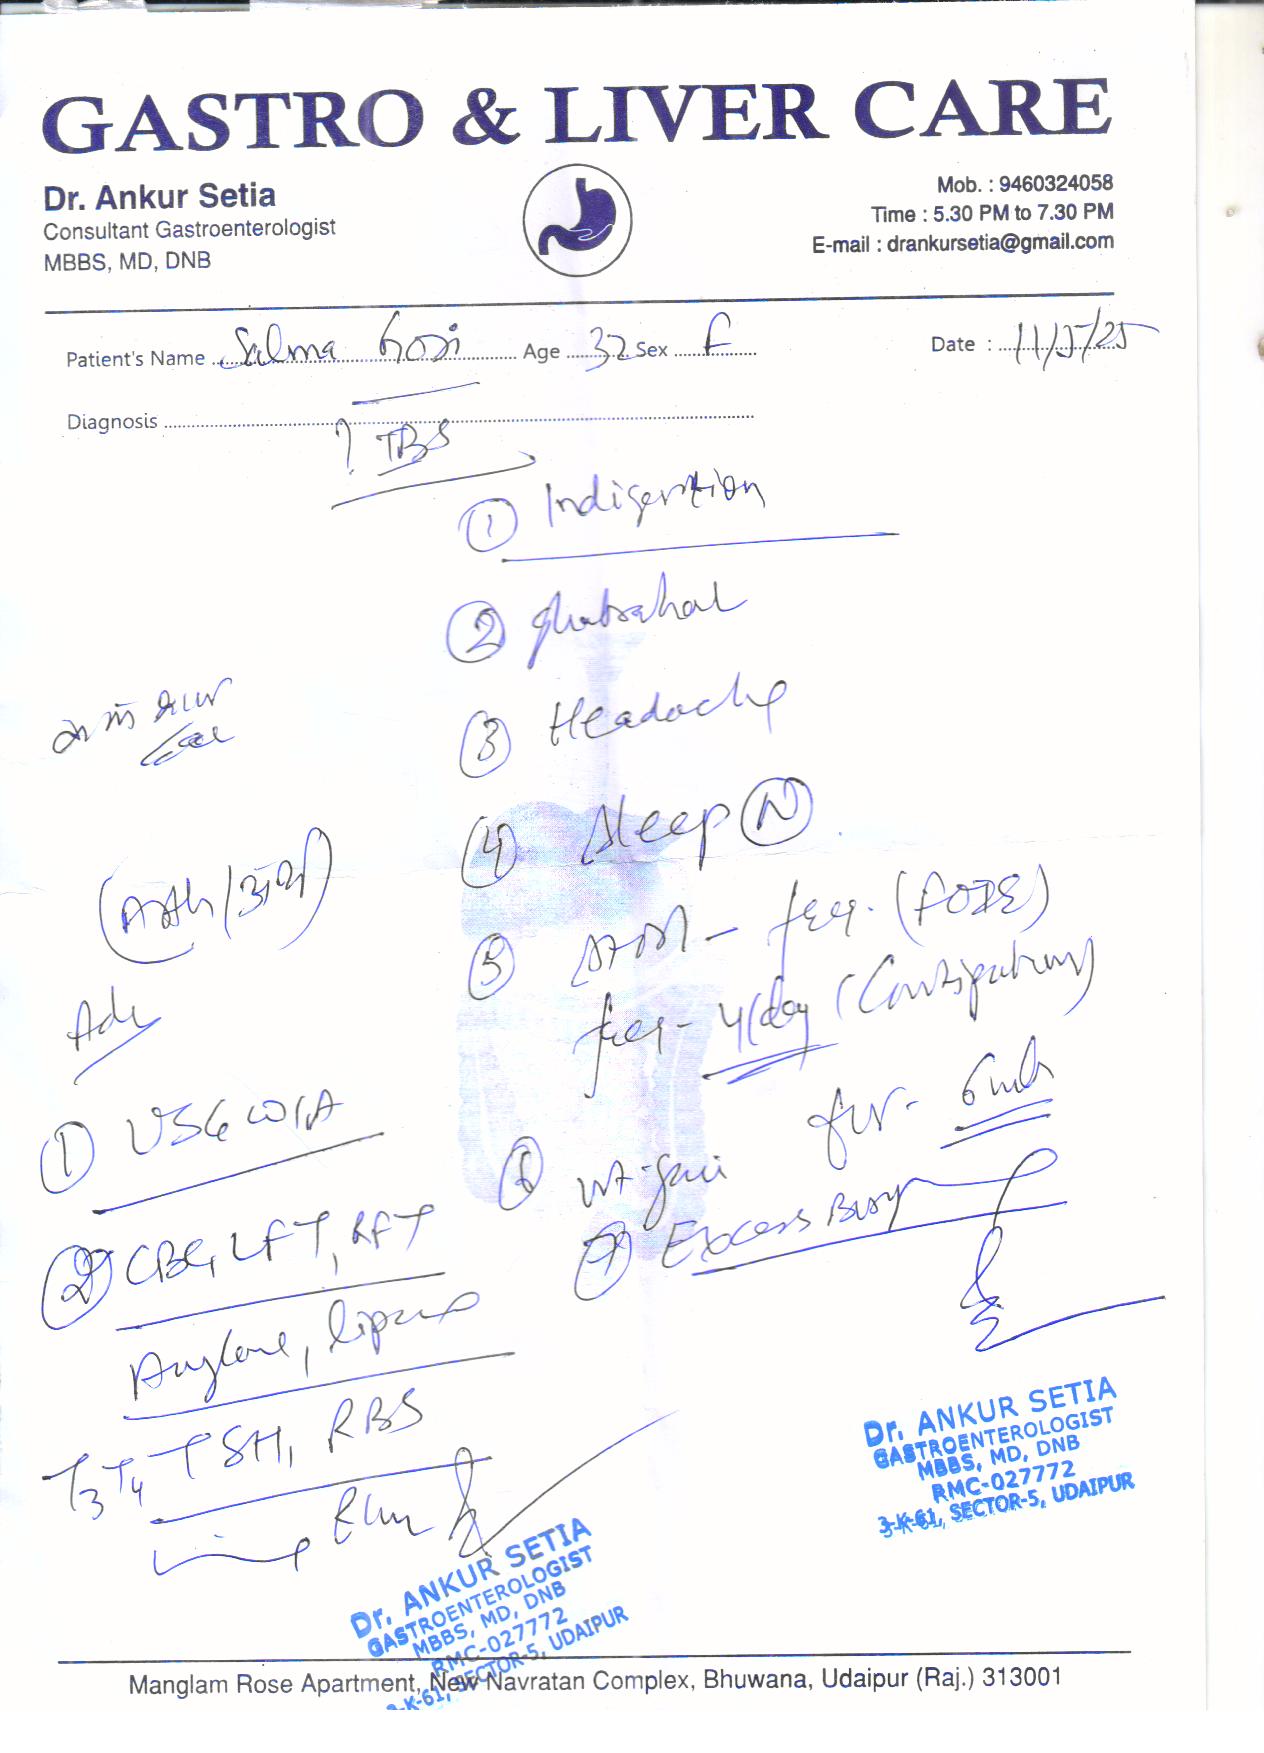 GASTRO & LIVER CARE
Dr. Ankur Setia
Consultant Gastroenterologist
MBBS, MD, DNB
Mob. : 9460324058
Time : 5.30 PM to 7.30 PM
E-mail : drankursetia@gmail.com
Patient's Name Salma Age 32 Sex F Date : 11/5/25
Diagnosis
?
① Indigestion
② ghabrahat
③ Headache
④ Sleep Ⓝ
⑤ - freq.
freq - 4/day (Constipation)
for - 6 mth
⑥ wt-gain
⑦ Excess Burp
Adv
① USG W/A
② CBC, LFT, RFT
Amylase, lipase
T3 T4 TSH, RBS
Urine
Dr. ANKUR SETIA
GASTROENTEROLOGIST
MBBS, MD, DNB
RMC-027772
3-K-61, SECTOR-5, UDAIPUR
Dr. ANKUR SETIA
GASTROENTEROLOGIST
MBBS, MD, DNB
RMC-027772
3-K-61, SECTOR-5, UDAIPUR
Manglam Rose Apartment, New Navratan Complex, Bhuwana, Udaipur (Raj.) 313001